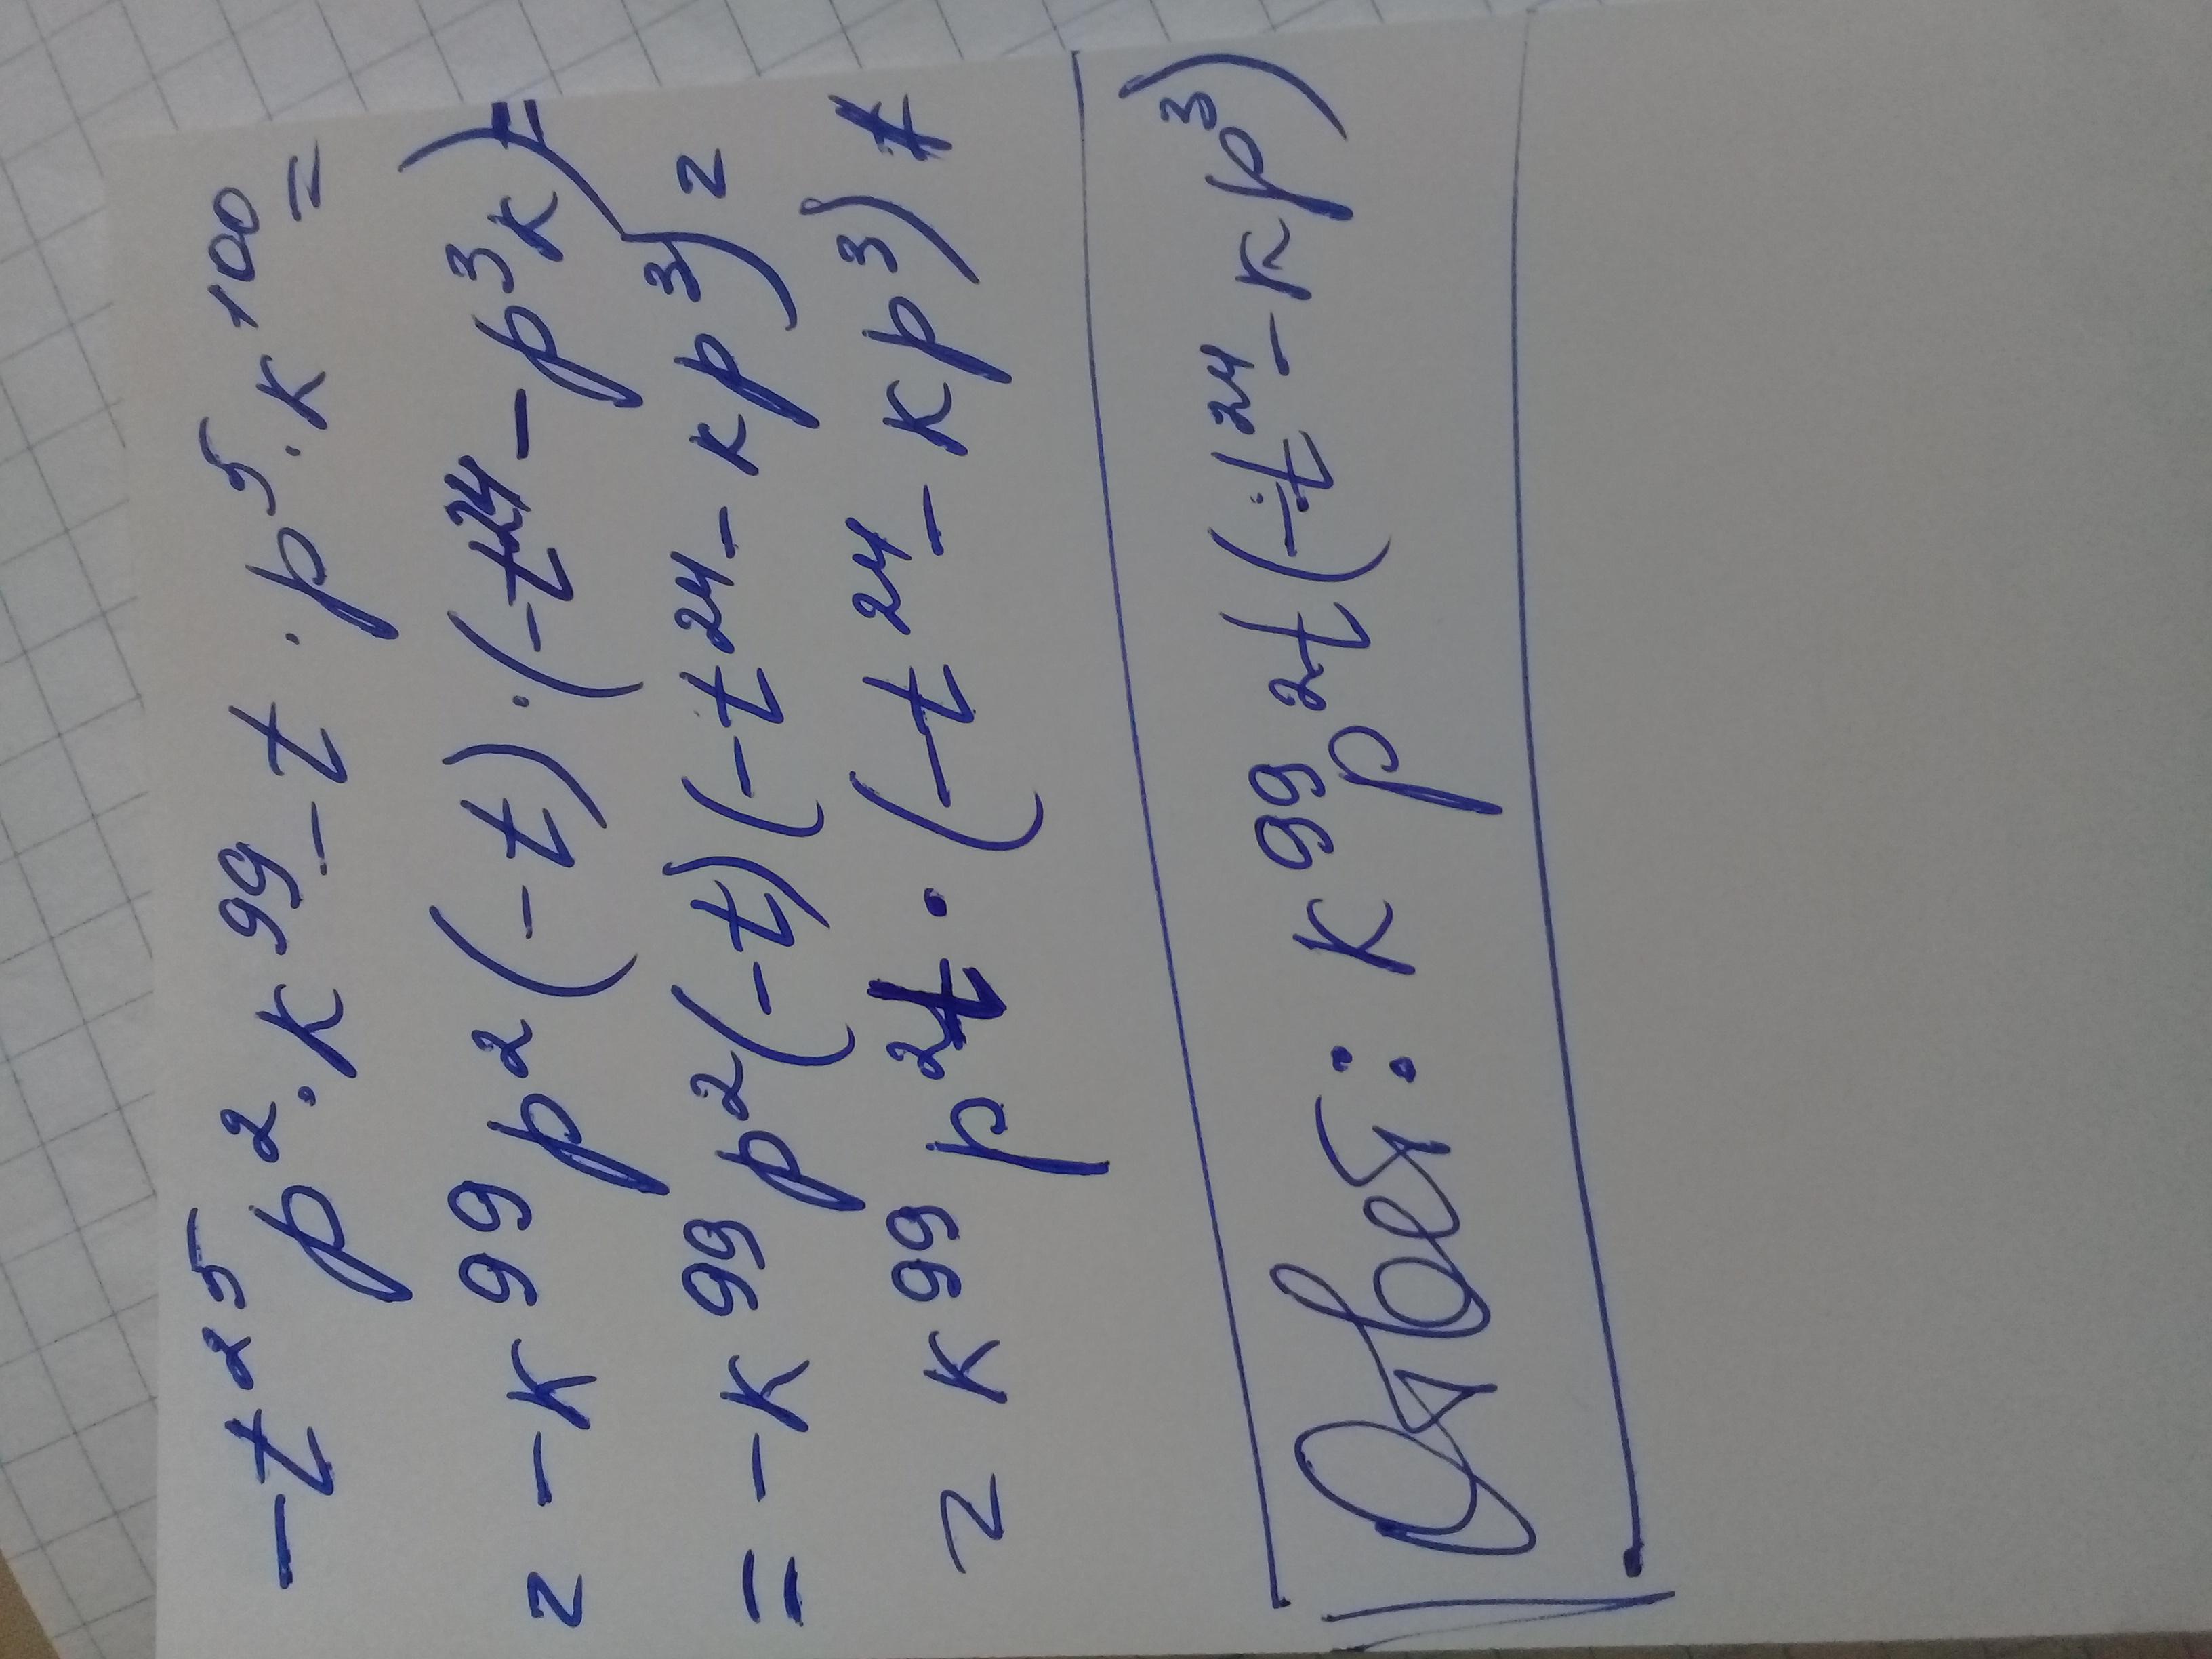 -t²⁵p²·k⁹⁹-t·p⁵·k¹⁰⁰=
= -k⁹⁹p²(-t)·(-t²⁴-p³k)=
= -k⁹⁹p²(-t)(-t²⁴-kp³)=
= k⁹⁹p²t·(-t²⁴-kp³)
Ответ: k⁹⁹p²t(-t²⁴-kp³)